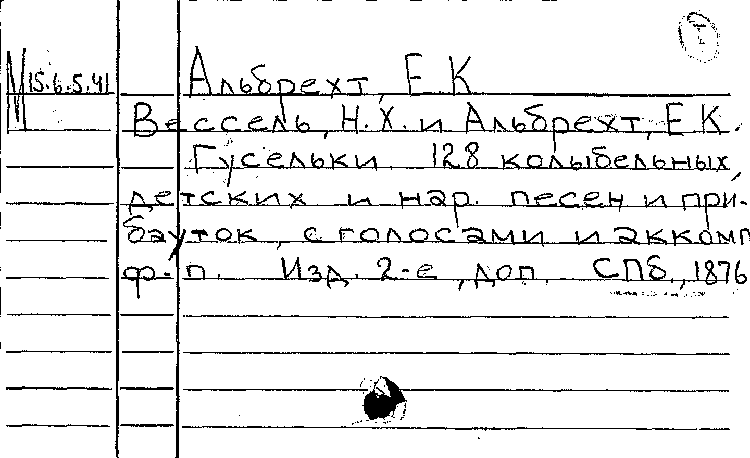 М 15.6.5.41 Альбрехт, Е.К.
Вессель, Н.Х. и Альбрехт, Е.К.
Гусельки. 128 колыбельных,
детских и нар. песен и при-
бауток, с голосами и аккомп
ф.-п. Изд. 2-е, доп. СПб., 1876